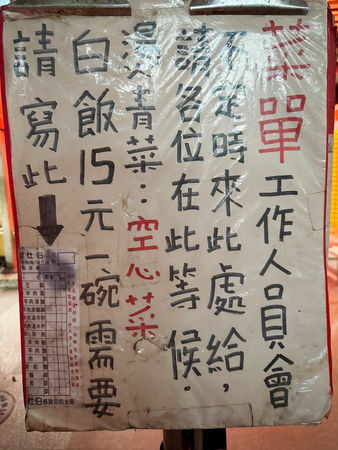 菜單工作人員會
不定時來此處給，
請各位在此等候。
燙青菜：空心菜。
白飯15元一碗需要
請寫此
灶伯